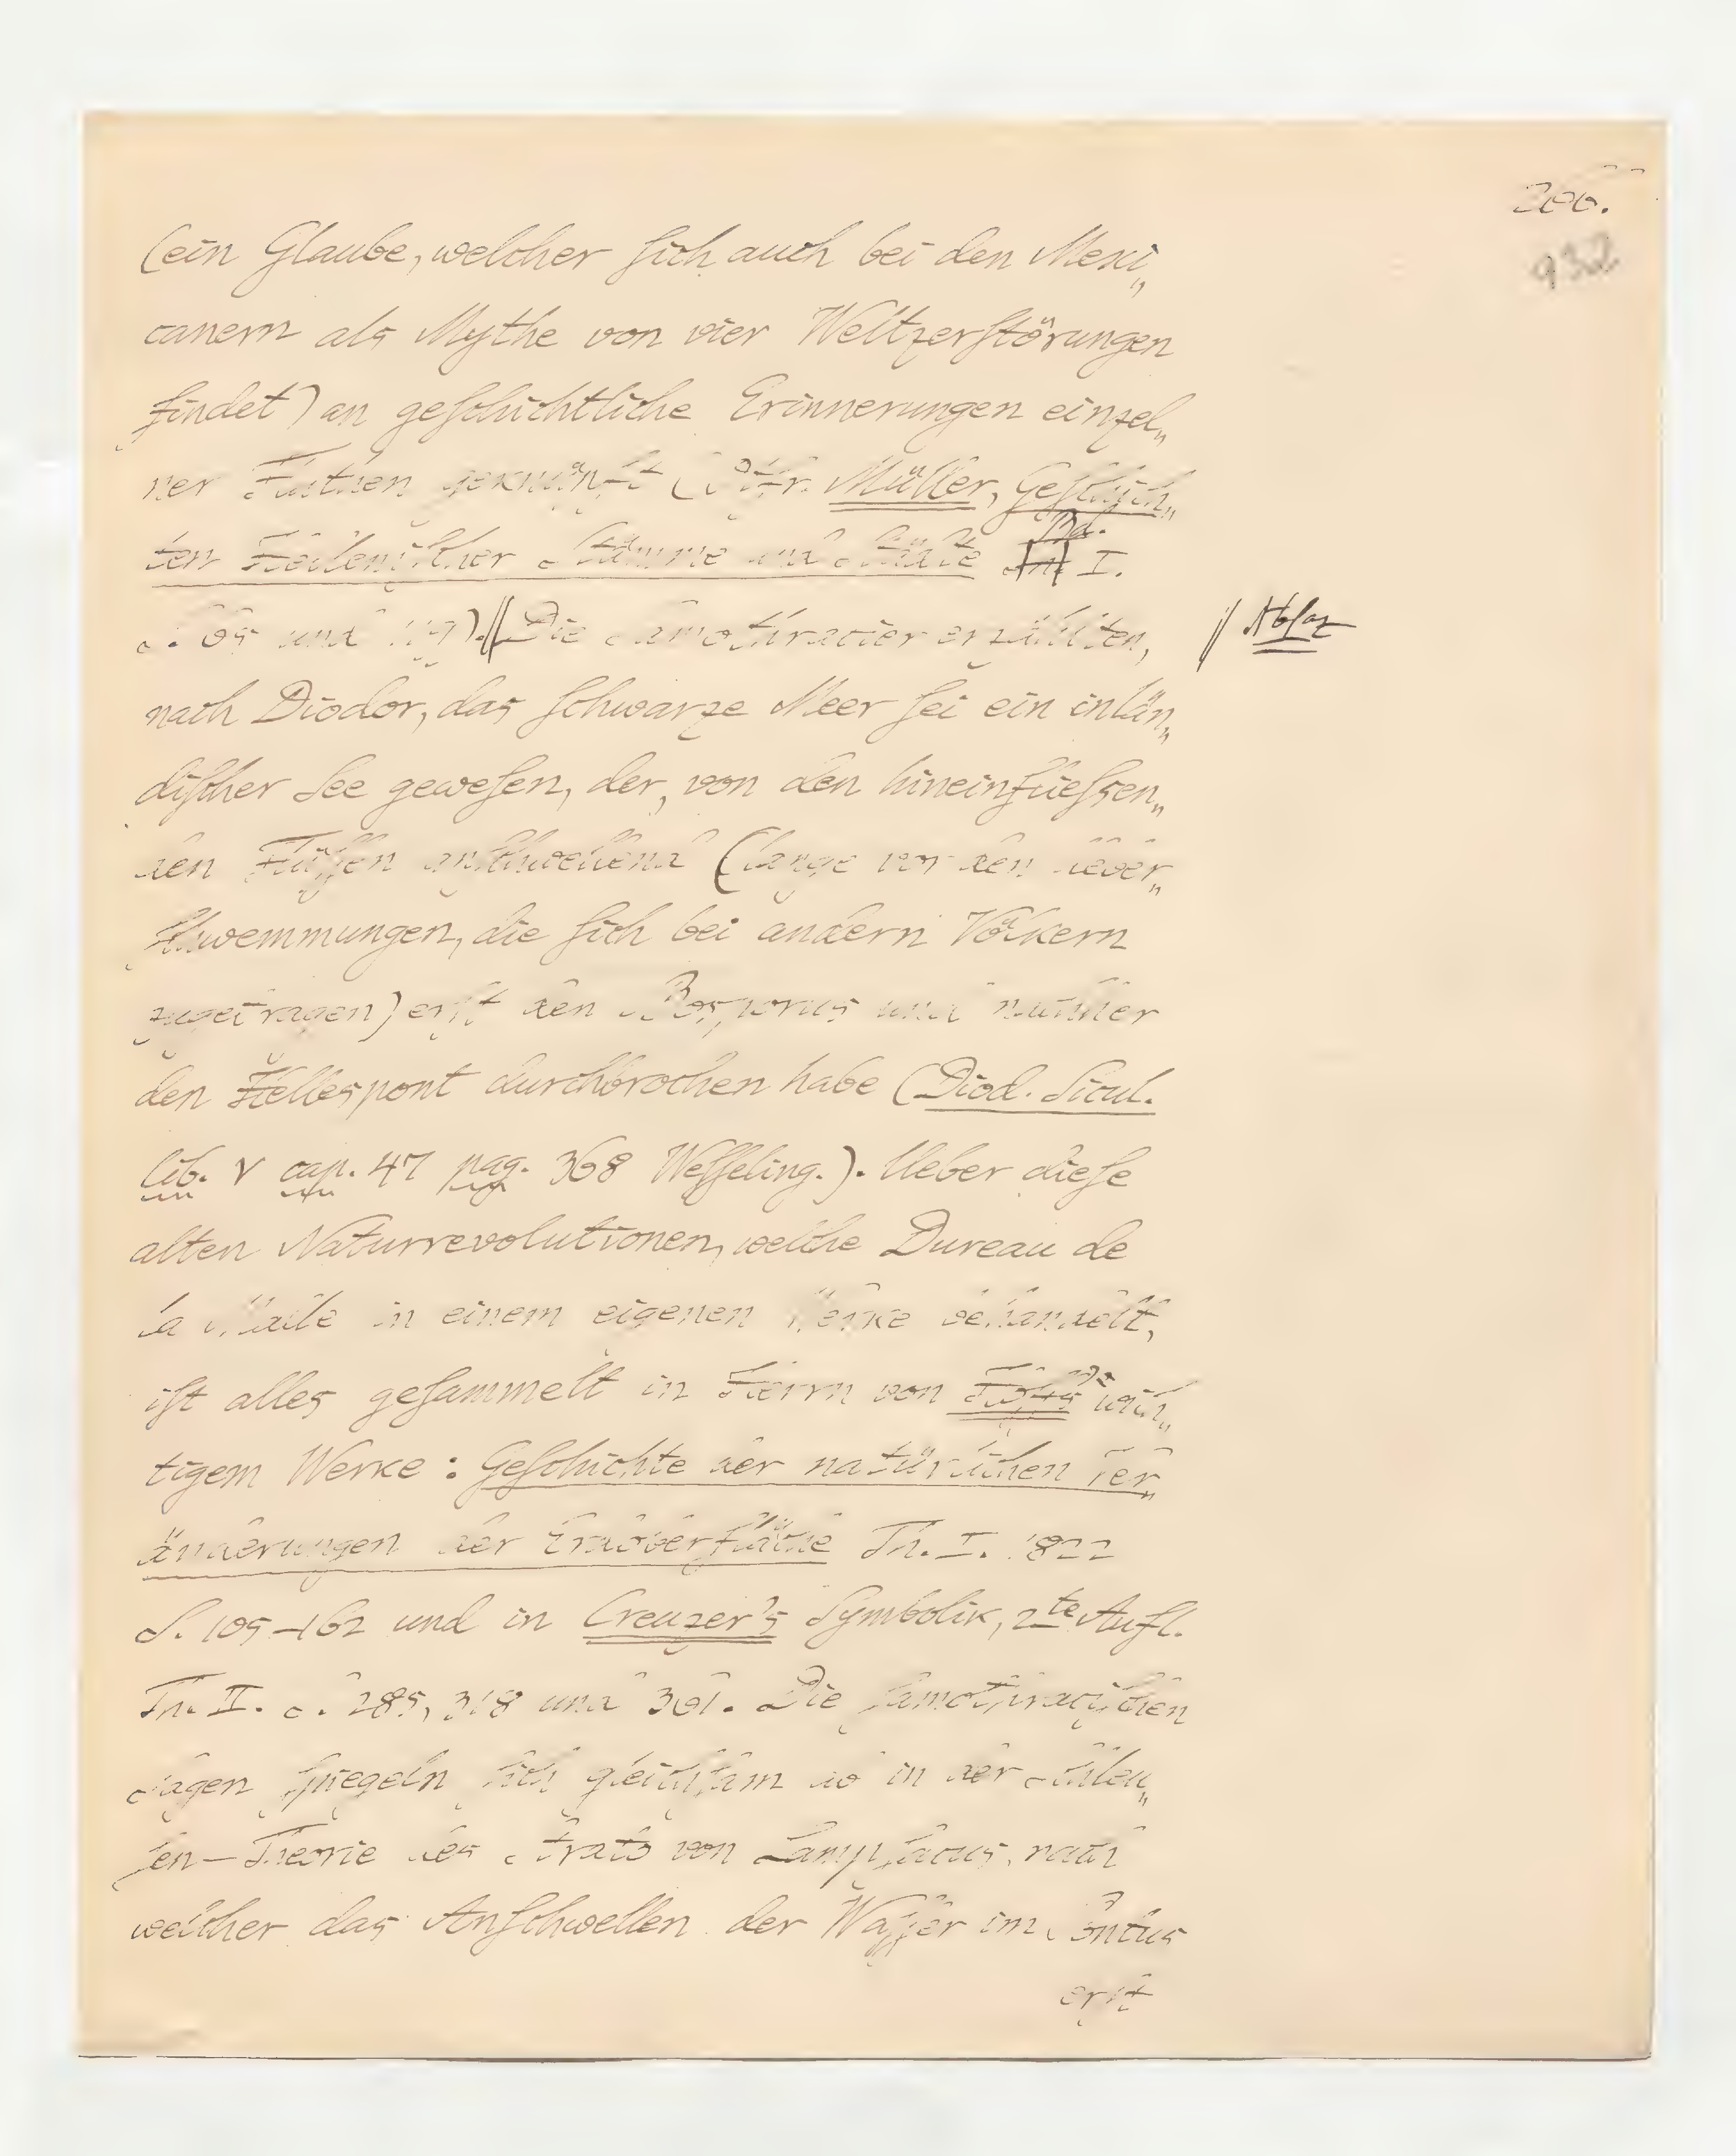 206.
932
(ein Glaube, welcher ſich auch bei den Mexi„
canern als Mythe von vier Weltzerſtörungen
findet) an geſchichtliche Erinnerungen einzel„
ner Fluthen geknüpft (Otfr. Müller, Geſchich„
ten Hellenischer Stämme und Städte Bd. I.
S. 65 und 119).// Die Samothracier erzählten, // Absaz
nach Diodor, das ſchwarze Meer ſei ein inlän„
diſcher See geweſen, der, von den hineinfließen„
den Flüſſen anſchwellend (lange vor den Ueber„
ſchwemmungen, die ſich bei andern Völkern
zugetragen) erſt den Bosporus und nachher
den Hellespont durchbrochen habe (Diod. Sicul.
lib. V cap. 47 pag. 368 Weſſeling.). Ueber dieſe
alten Naturrevolutionen, welche Dureau de
la Malle in einem eigenen Werke behandelt,
iſt alles geſammelt in Herrn von Hoff's wich„
tigem Werke: Geſchichte der natürlichen Ver„
änderungen der Erdoberfläche Th. I. 1822
S. 105–162 und in Creuzer's Symbolik, 2te Aufl.
Th. II. S. 285, 318 und 361. Die ſamothraciſchen
Sagen ſpiegeln ſich gleichſam ab in der Schleu„
ſen–Theorie des Strato von Lampſacus, nach
welcher das Anſchwellen der Waſſer im Pontus
erſt